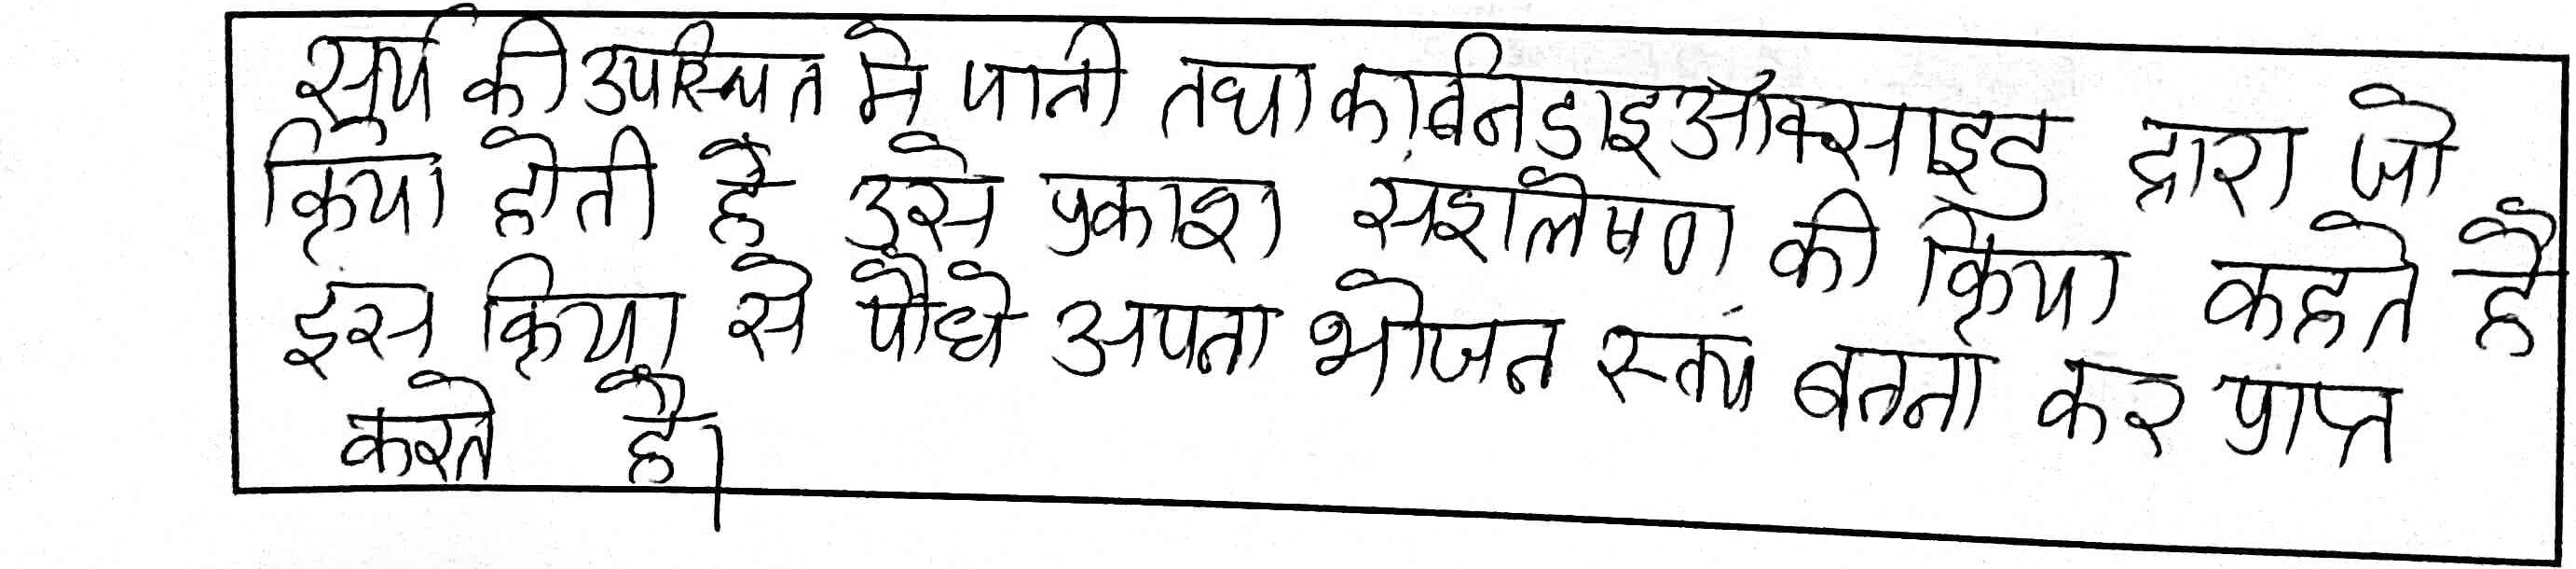 सूर्य की उपस्थित मे पानी तथा कार्बनडाइऑक्साइड द्वारा जो
क्रिया होती है उसे प्रकाश संशलेषण की क्रिया कहते है
इस क्रिया से पौधे अपना भोजन स्वयं बनना कर प्राप्त
करते है।